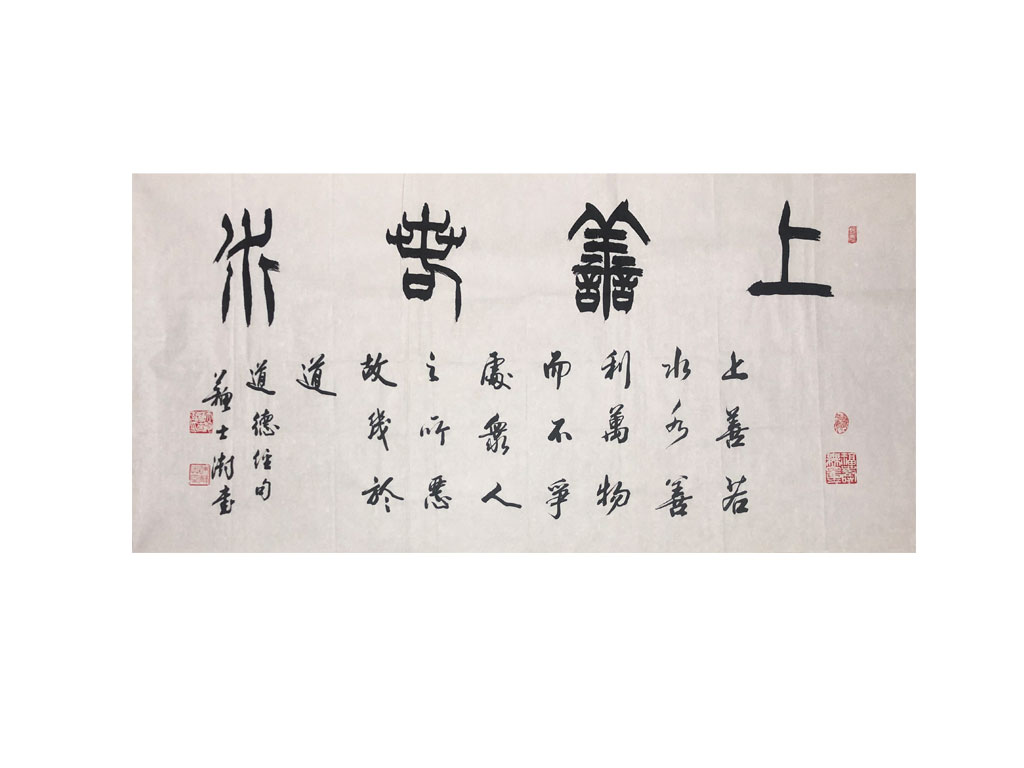 上善若水
上善若
水水善
利萬物
而不爭
處眾人
之所惡
故幾於
道
道德經句
蘇士澍書